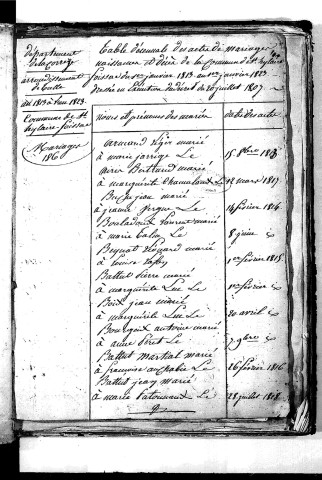 département
de la corrèze
arrondissement
de tulle
de 1813 à l'an 1823
Commune de St
hylaire foissac
Mariages
Table décennale des actes de mariage
naissances et décès de la Commune de St hylaire
foissac du 1er janvier 1813 au 1er janvier 1823
dressée en Exécution du décret du 20 juillet 1807
noms et prénoms des mariés
date des actes
armand léger marié
à marie jarrige Le
15 8bre 1813
Bertrand marié
à marguérite Le
12 mars 1817
jean marié
à jeanne Le
14 février 1816
Bouladoux laurent marié
à marie Le
8 juin
Beynat léonard marié
à Louise Le
1er février 1815
Battut pierre marié
à marguerite Luc Le
1er février
Boix jean marié
à marguerite Luc Le
20 avril
Bourgoix antoine marié
à anne Le
7 9bre
Battut martial marié
à françoise Le
26 février 1816
Battut jean marié
à marie Le
28 juillet 1818